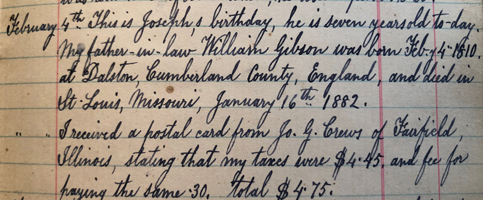 February 4th. This is Joseph,s birthday, he is seven years old to-day.
My father-in-law William Gibson was born Feb-y 4-1810.
at Dalston, Cumberland County, England, and died in
St Louis, Missouri, January 16th 1882.
" " I received a postal card from Jo. G. Crews of Fairfield,
Illinois, stating that my taxes were $4.45, and fee for
paying the same .30. Total $4.75.